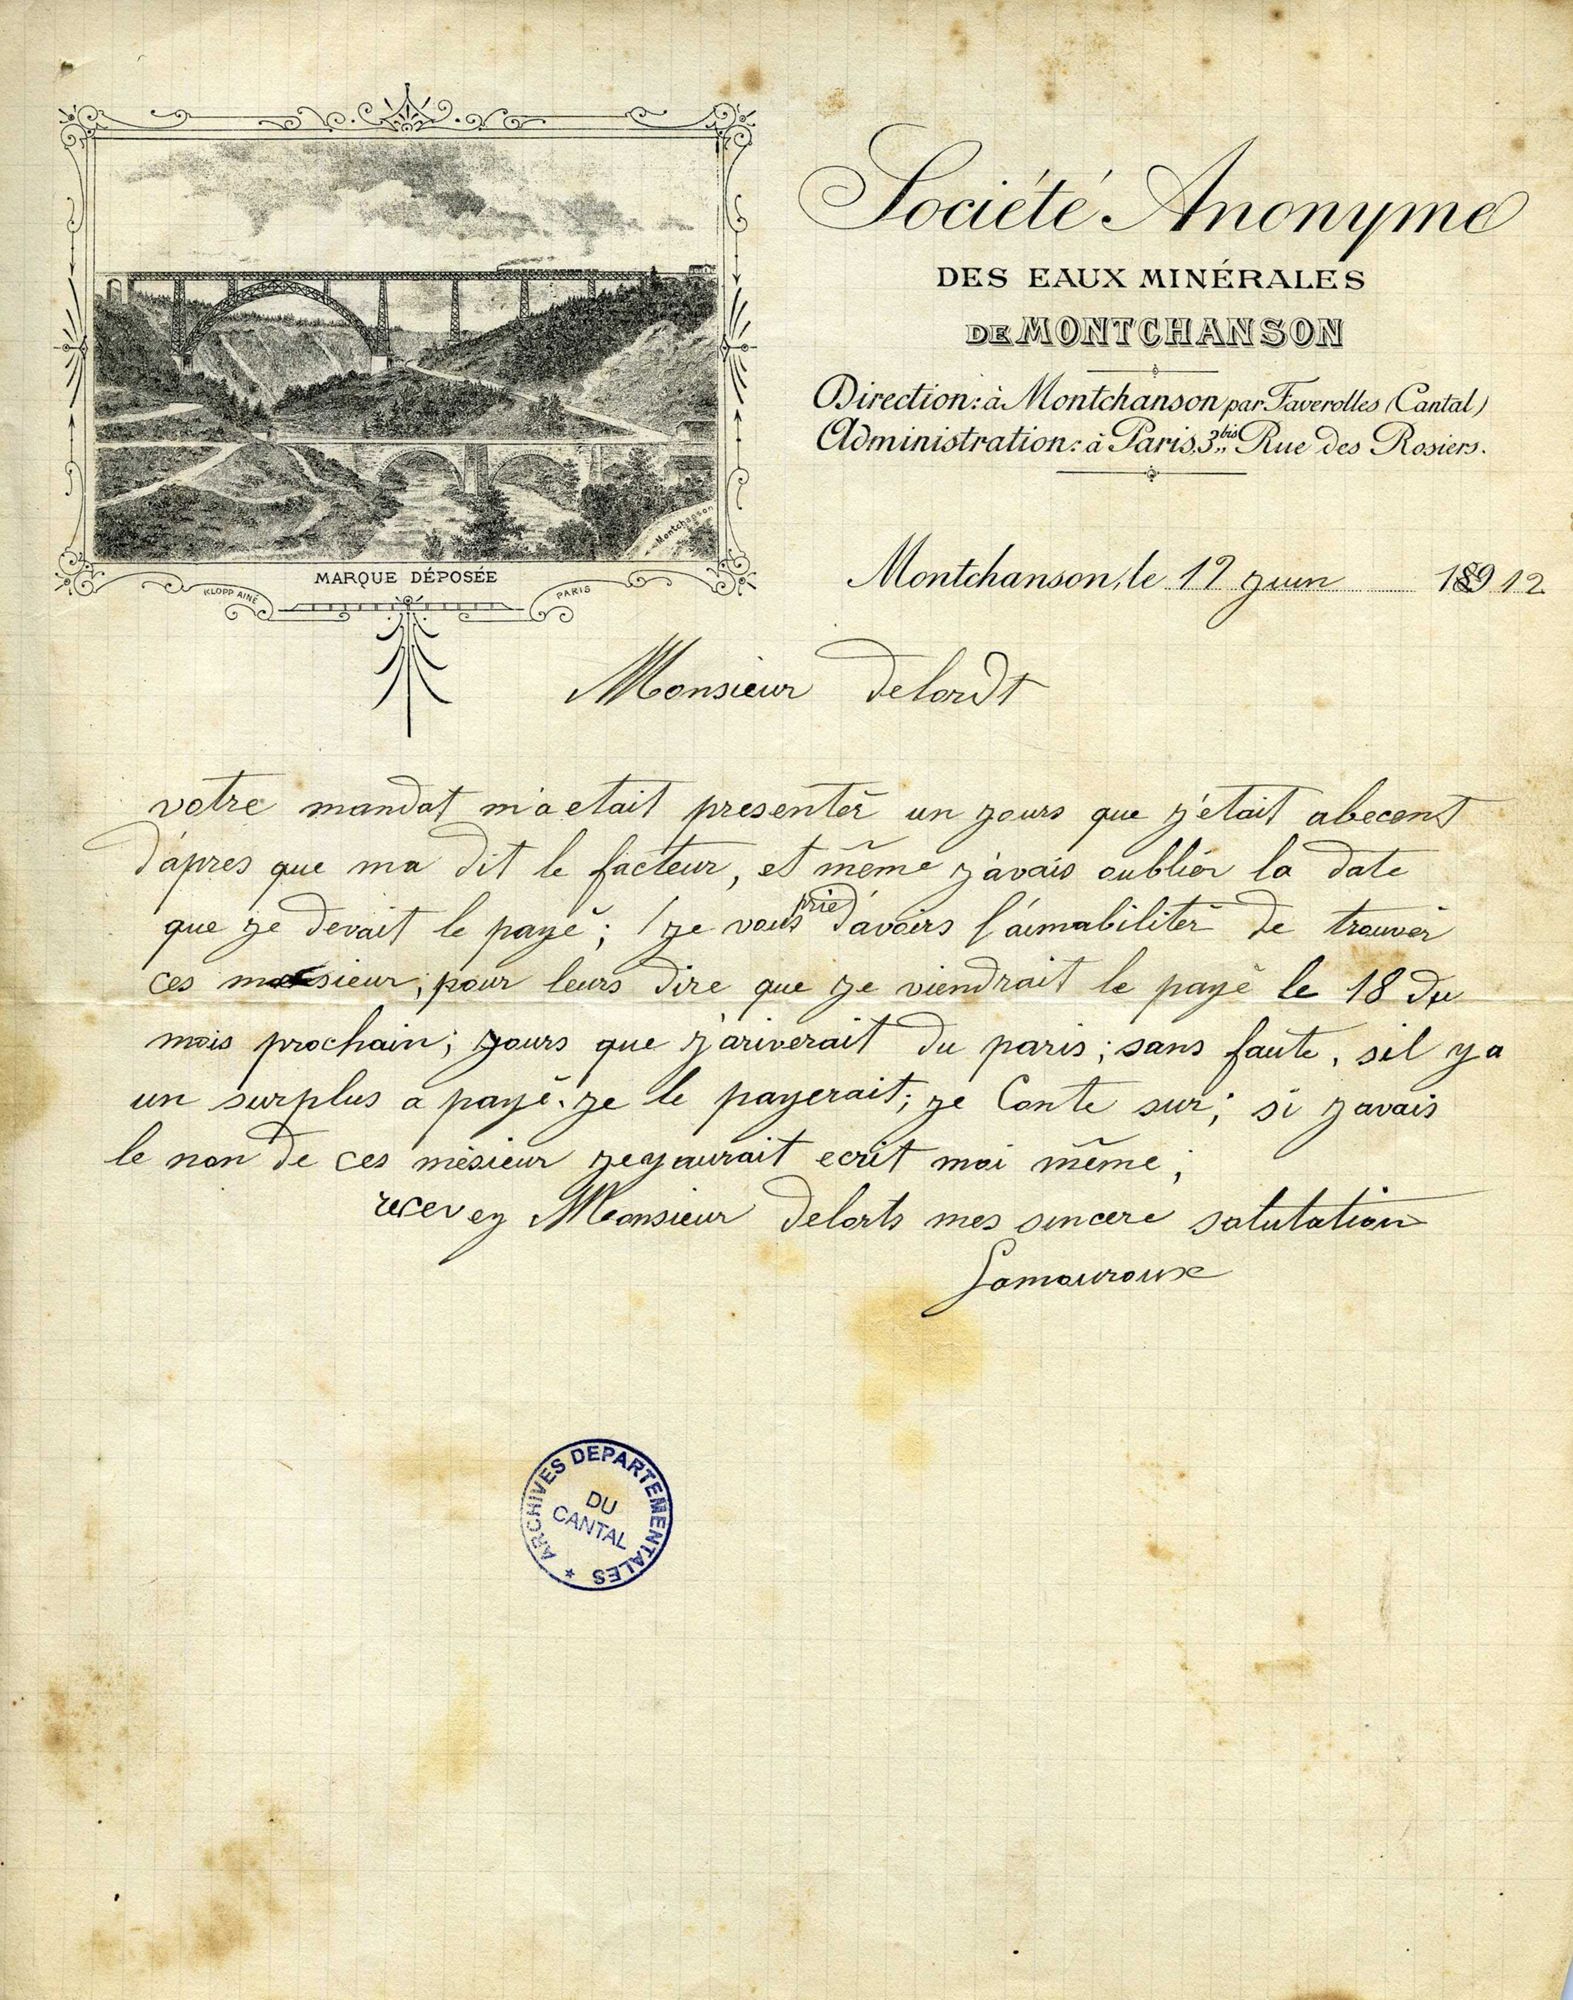 Société Anonyme
DES EAUX MINÉRALES
DE MONTCHANSON
Direction: à Montchanson par Faverolles (Cantal)
Administration: à Paris, 3bis, Rue des Rosiers.
Montchanson
MARQUE DÉPOSÉE
KLOPP AINÉ PARIS
Montchanson, le 12 juin 1912
Monsieur Delordt
votre mandat m'a etait presentér un jours que j'etait abecent
d'apres que ma dit le facteur, et même j'avais oubliér la date
que je devait le payé; je vous prie d'avoirs l'aimabilitér de trouvér
ces mesieur, pour leurs dire que je viendrait le payé le 18 du
mois prochain; jours que j'ariverait du paris; sans faute, sil y a
un surplus a payé. je le payerait; je Conte sur; si javais
le non de ces mésieur jeyaurait ecrit moi même;
recevez Monsieur Delorts mes sincere salutation
Lamouroux
ARCHIVES DEPARTEMENTALES *
DU
CANTAL